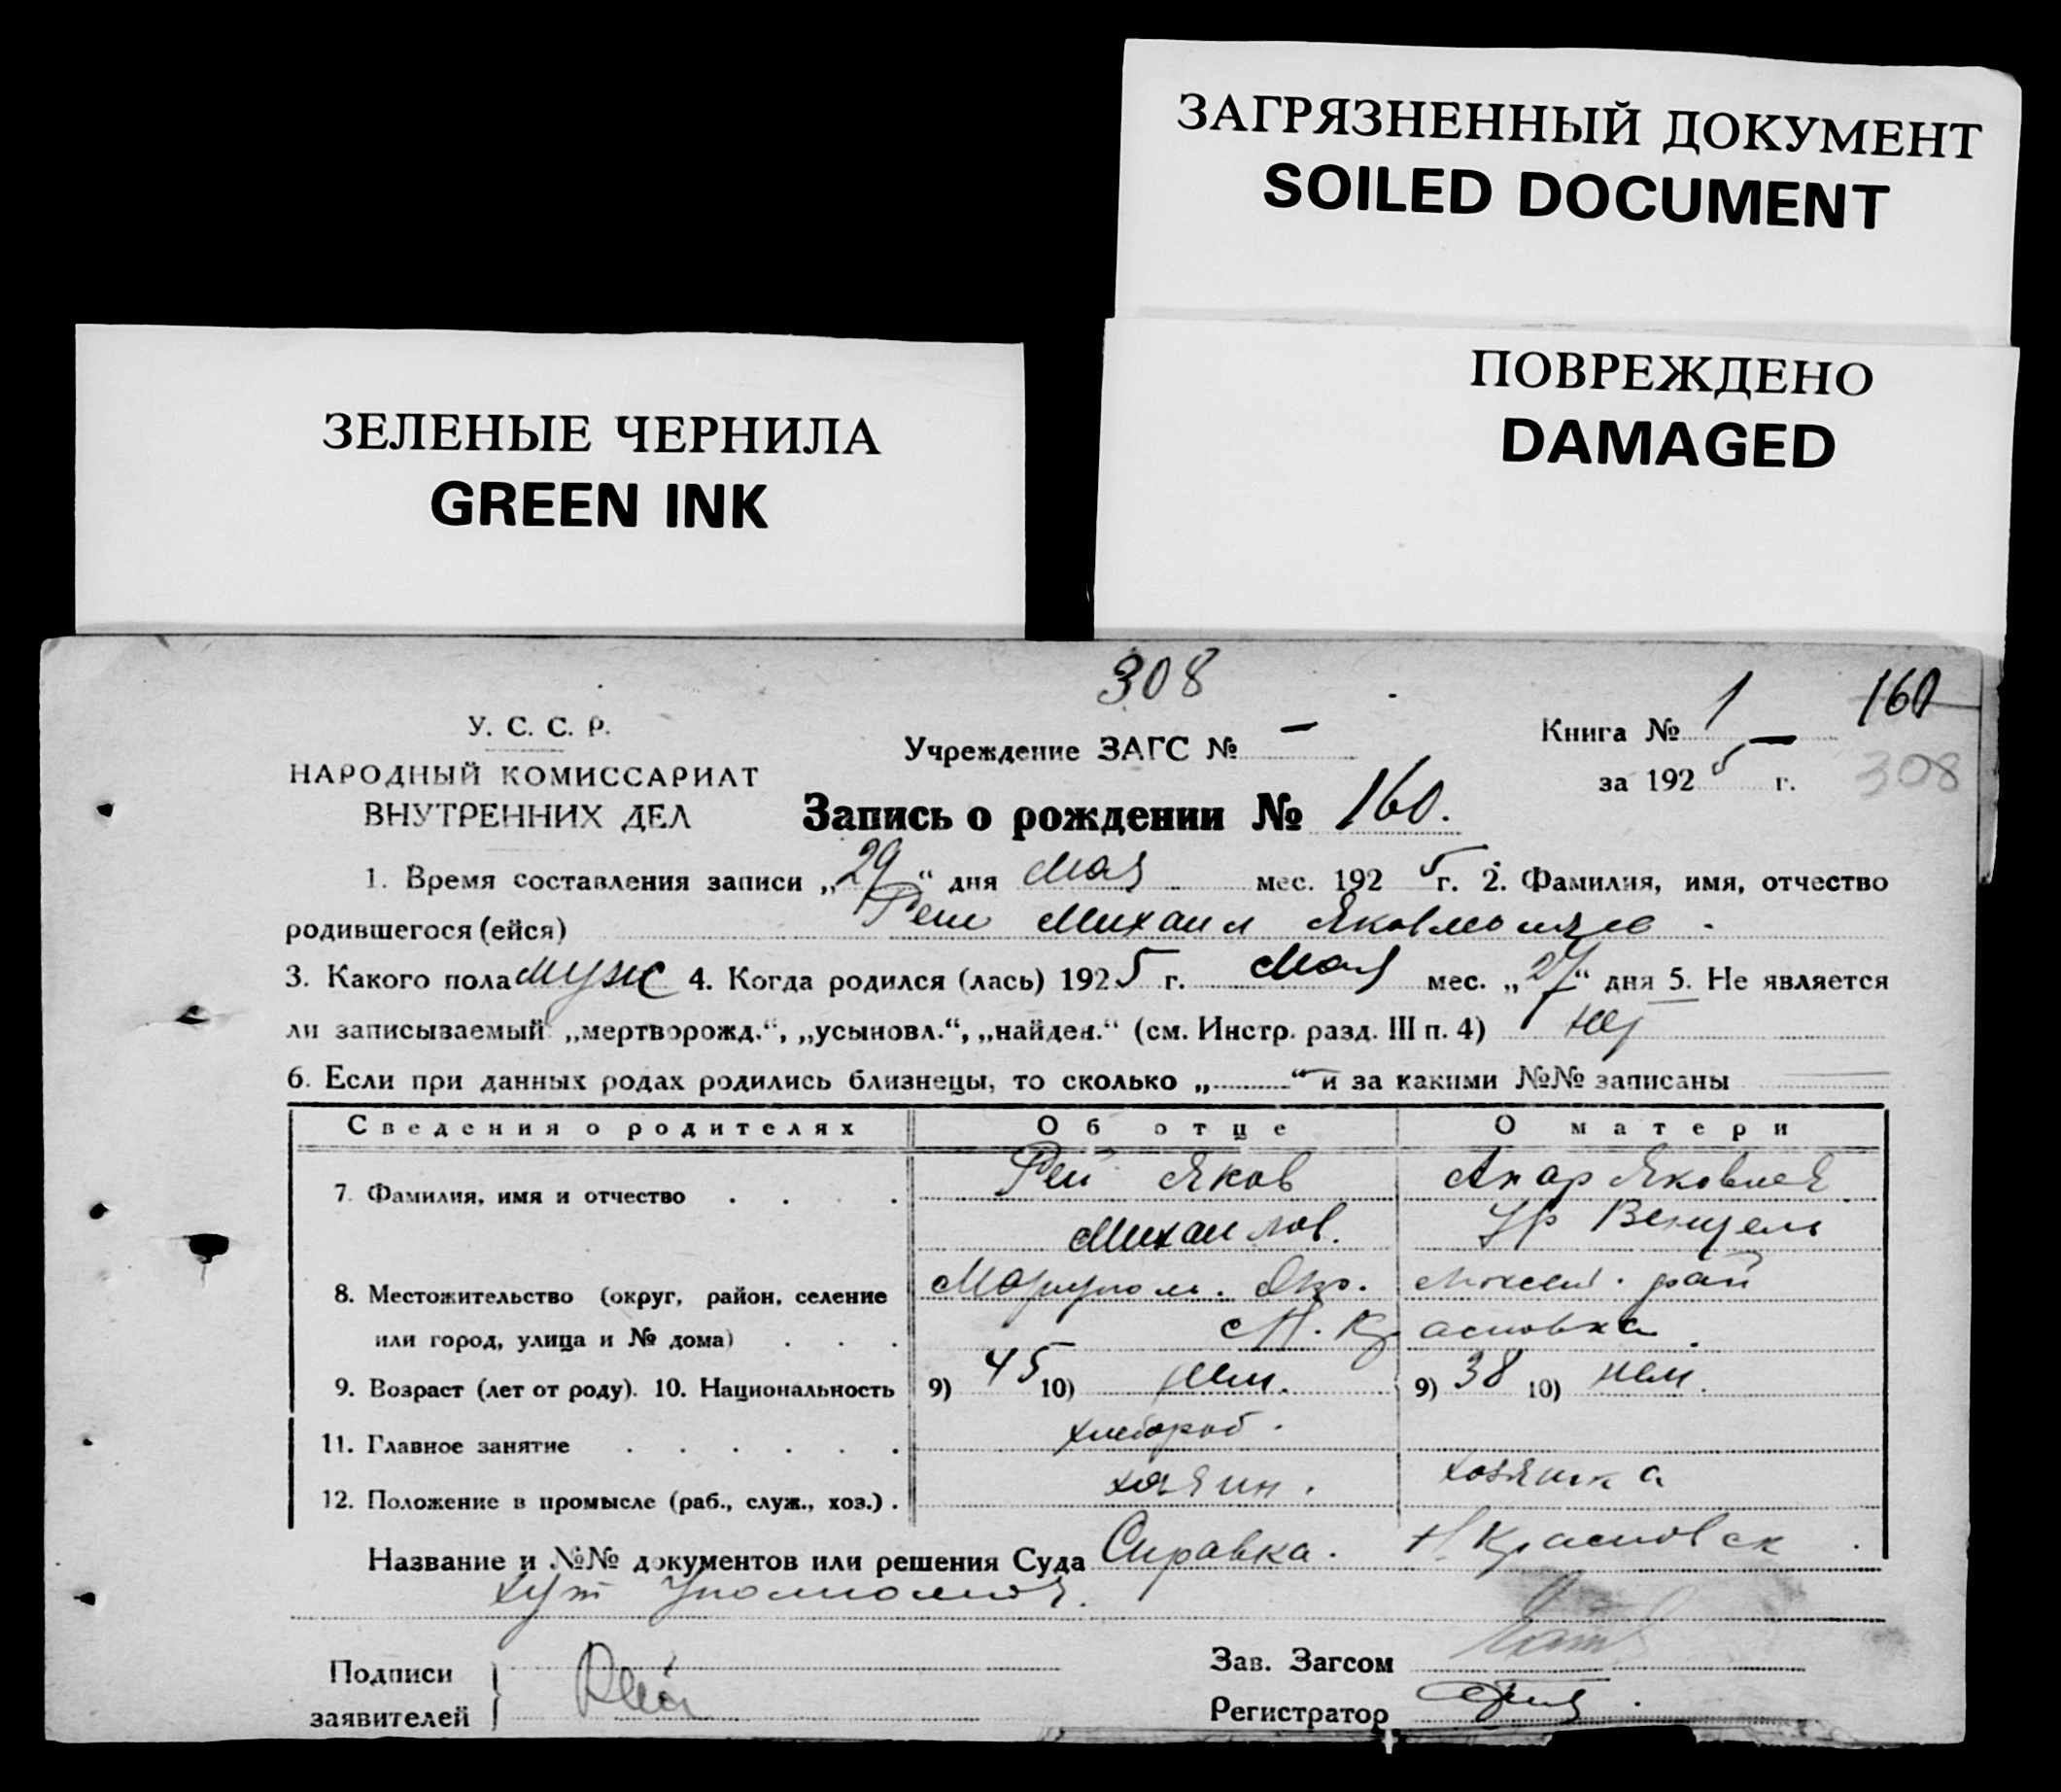 ЗАГРЯЗНЕННЫЙ ДОКУМЕНТ
SOILED DOCUMENT
ПОВРЕЖДЕНО
DAMAGED
ЗЕЛЕНЫЕ ЧЕРНИЛА
GREEN INK
308
У. С. С. Р.
НАРОДНЫЙ КОМИССАРИАТ
ВНУТРЕННИХ ДЕЛ
Учреждение ЗАГС № –
Книга № 1 –
160
за 1925 г.
308
Запись о рождении № 160.
1. Время составления записи „29“ дня Мая мес. 1925 г. 2. Фамилия, имя, отчество
родившегося (ейся) Рей Михаил
3. Какого пола муж 4. Когда родился (лась) 1925 г. Мая мес. „27“ дня 5. Не является
ли записываемый „мертворожд.“, „усыновл.“, „найден.“ (см. Инстр. разд. III п. 4) нет
6. Если при данных родах родились близнецы, то сколько „–“ и за какими №№ записаны –
Сведения о родителях Об отце О матери
7. Фамилия, имя и отчество Рей Яков
Михаилов. Ур Венцель
8. Местожительство (округ, район, селение Мариупол. Окр. рай
или город, улица и № дома) Н. Красновка
9. Возраст (лет от роду). 10. Национальность 9) 45 10) нем. 9) 38 10) нем.
11. Главное занятие хлебороб.
12. Положение в промысле (раб., служ., хоз.). хозяин. хозяйка
Название и №№ документов или решения Суда Справка. Н. Красновск
хут
Подписи
заявителей
Рей
Зав. Загсом
Регистратор